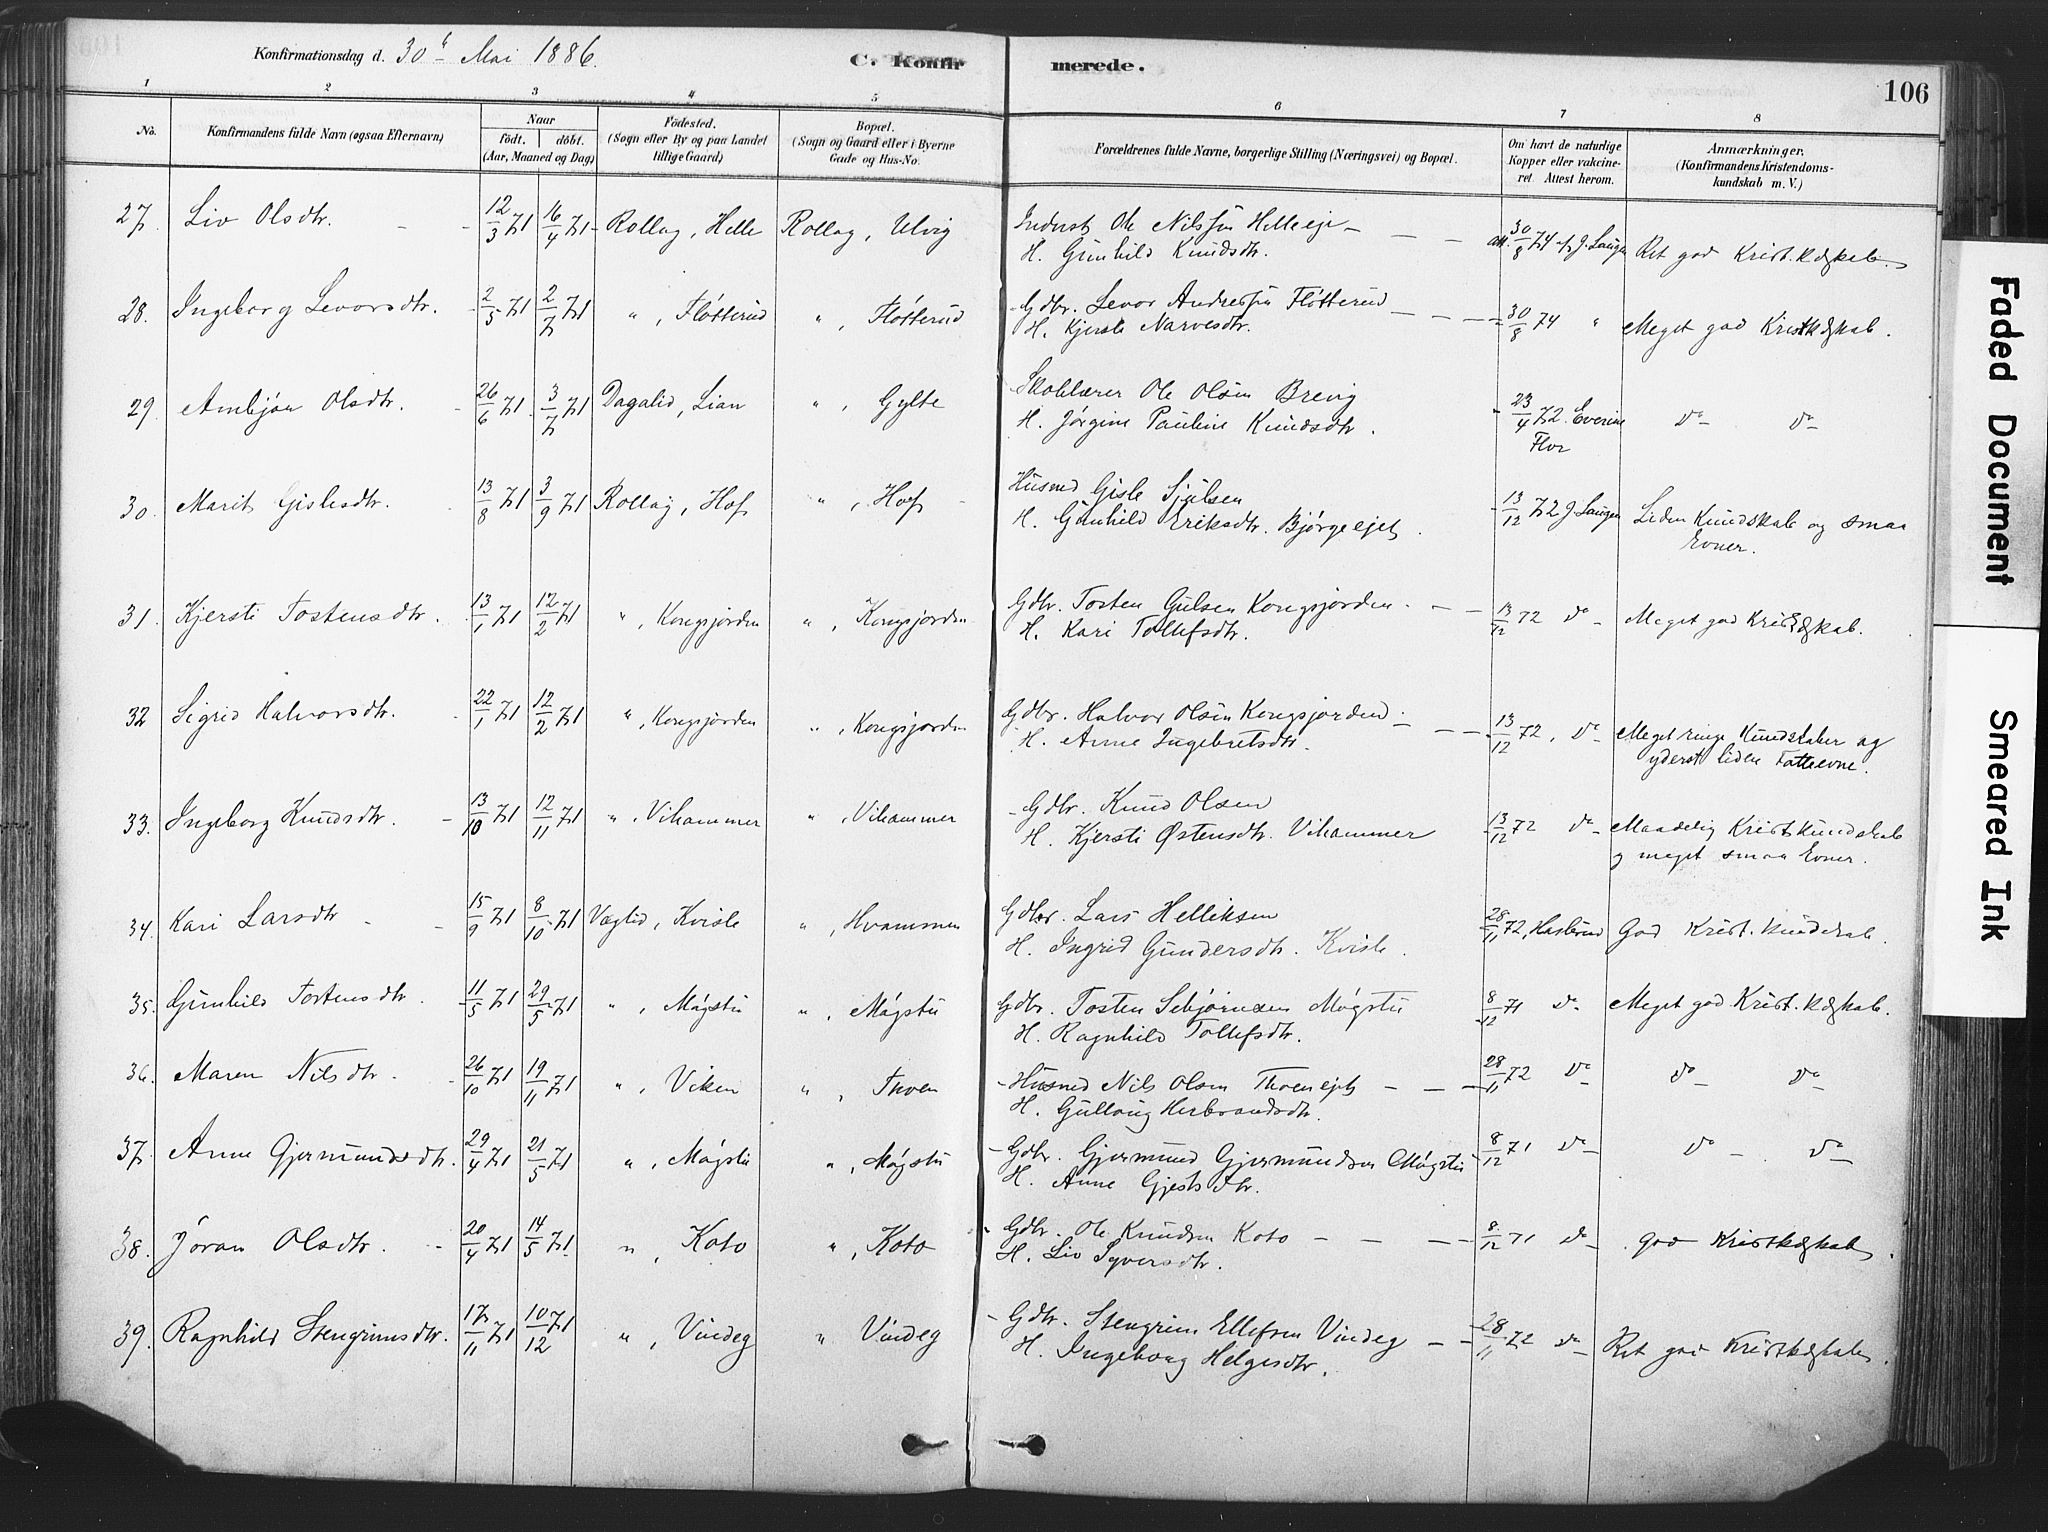 Konfirmationsdag d. 30te Mai 1886.
C. Konfirmerede.
106
1 2 3 4 5 6 7 8
No. Konfirmandens fulde Navn (ogsaa Efternavn)
Naar födt. döbt. (Aar, Maaned og Dag)
Födested. (Sogn eller By og paa Landet tillige Gaard)
Bopæl. (Sogn og Gaard eller i Byerne Gade og Hus-No.
Forældrenes fulde Navne, borgerlige Stilling (Næringsvei) og Bopæl.
Om havt de naturlige Kopper eller vakcineret. Attest herom.
Anmærkninger. (Konfirmandens Kristendomskundskab m. V.)
27. Liv Olsdtr. 12/3 71 16/4 71 Rollag, Helle Rollag, Ulvig Inderst Ole Nilssøn Helleeje att. 30/8 74 J. Laugen Ret god Krist.kdskab.
H. Gunhild Knudsdtr.
28. Ingeborg Levorsdtr. 2/5 71 2/7 71 " , Fløtterud " , Fløtterud Gdbr. Levor Andressøn Fløtterud 30/8 74 " Meget god Kristkdskab.
H. Kjersti Narvesdtr.
29. Ambjør Olsdtr. 26/6 71 3/7 71 Dagalid, Lian " , Gylte Skolelærer Ole Olsøn Brevig 23/4 72. Everine Flor do do
H. Jørgine Pauline Knudsdtr.
30. Marit Gislesdtr. 13/8 71 3/9 71 Rollag, Hof " , Hof Husmd Gisle Sjulsen 13/12 72 J. Laugen Liden Kundskab og smaa Evner.
H. Gunhild Eriksdtr. Bjørgeejet.
31. Kjersti Tostensdtr. 13/1 71 12/2 71 " , Kongsjorden " , Kongsjorden Gdbr. Tosten Gulsen Kongsjorden. 13/12 72 do Meget god Kristkdskab.
H. Kari Tollefsdtr.
32 Sigrid Halvorsdtr. 22/1 71 12/2 71 " , Kongsjorden " , Kongsjorden Gdbr. Halvor Olsen Kongsjorden 13/12 72, do Meget ringe Kundskaber og yderst liden Fatteevne.
H. Anne Ingebretsdtr.
33. Ingeborg Knudsdtr. 13/10 71 12/11 71 " , Vihammer " , Vihammer Gdbr. Knud Olsen 13/12 72 do Maadelig Kristkundskab og meget smaa Evner.
H. Kjersti Østensdtr. Vihammer
34. Kari Larsdtr 15/9 71 8/10 71 Væglid, Kvisle " , Hvammen Gdbr. Lars Helliksen 28/11 72, Haslerud God Krist. kundskab.
H. Ingrid Gundersdtr. Kvisle.
35. Gunhild Tostensdtr. 11/5 71 29/5 71 " , Møgstu " , Møgstu Gdbr. Tosten Sebjørnsen Møgstu 8/12 71 do Meget god Krist. kdskab.
H. Ragnhild Tollefsdtr.
36. Maren Nilsdtr. 26/10 71 19/11 71 " , Viken " , Thoen Husmd Nils Olsen Thoenejet 28/11 72 do do do
H. Gullaug Herbrandsdtr.
37. Anne Gjermundsdtr. 29/4 71 21/5 71 " , Møgstu " , Møgstu Gdbr. Gjermund Gjermundsen Møgstu 8/12 71 do do do
H. Anne Gjestsdtr.
38. Jøran Olsdtr. 20/4 71 14/5 71. " , Koto " , Koto Gdbr. Ole Knudsen Koto 8/12 71 do god Kristkdskab.
H. Liv Syversdtr.
39. Ragnhild Stengrimsdtr. 17/11 71 10/12 71 " , Vindeg " Vindeg Gdbr. Stengrim Ellefsen Vindeg 28/11 72 do Ret god Kristkdskab.
H. Ingeborg Helgesdtr.
Faded Document
Smeared Ink